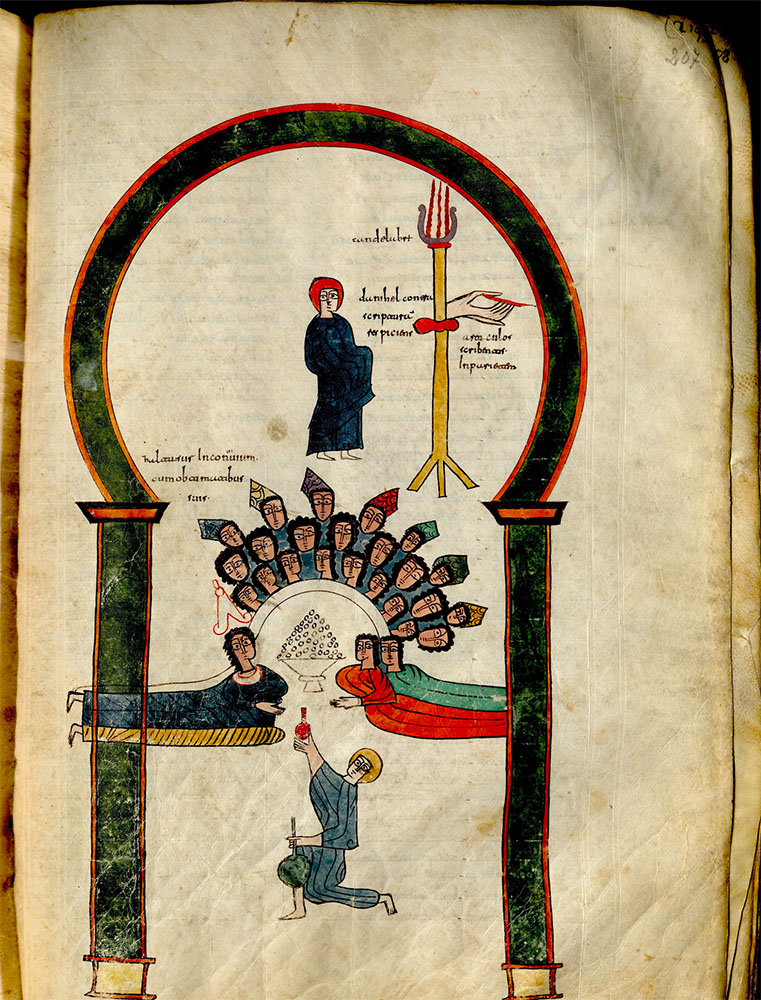 207
candelabrt
danihel contra
scripturā
respiciens
articulos
scribentes
In parietem
In conuiuium
cum obtimatibus
suis